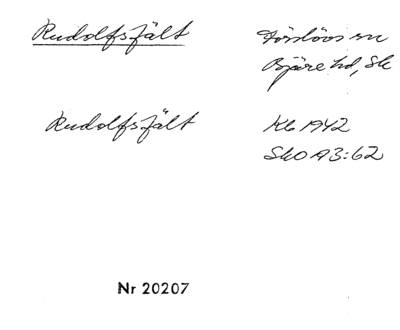 Rudolfsfält
Förslövs sn
Bjäre hd, Sk
Rudolfsfält
Kb 1942
SkO A3:62
Nr 20207